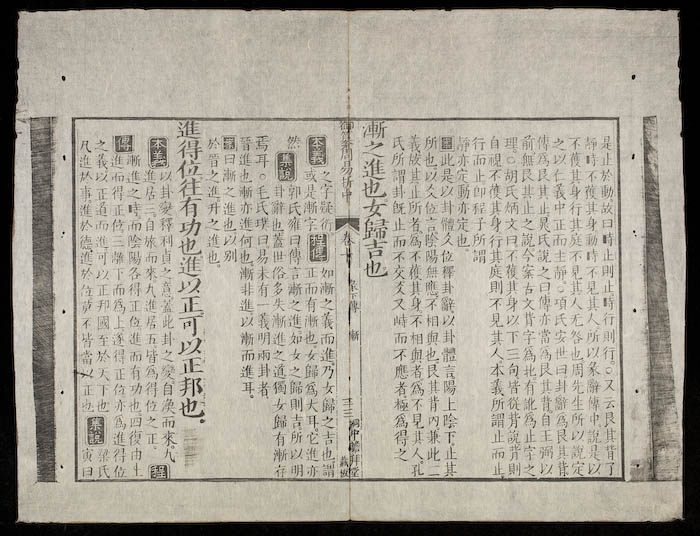 是止於動故曰時止則止時行則行○又云艮其背了
靜時不獲其身動時不見其人所以彖辭傳中說是以
不獲其身行其庭不見其人无咎也周先生所以說定
之以仁義中正而主靜○項氏安世曰卦辭為艮其背
傳為艮其止晁氏說之曰傳亦當為艮其背自王弼以
前無艮其止之說今案古文背字為北有訛為止字之
理○胡氏炳文曰不獲其身以下三句皆從背說背則
自視不獲其身行其庭則不見其人本義所謂止而止
行而止卽程子所謂
靜亦定動亦定也
案此是以卦體爻位釋卦辭以卦體言陽上陰下止其
所也以爻位言陰陽無應不相與也艮其背內兼此二
義故其止所者為不獲其身不相與者為不見其人孔
氏所謂卦既止而不交爻又峙而不應者極為得之
漸之進也女歸吉也
御纂周易折中 卷十 彖下傳 漸
本義 之字疑衍或是漸字 程傳 如漸之義而進乃女歸之吉也謂正而有漸也女歸為大耳它進亦
然 集說 郭氏雍曰傳言漸之進如女之歸則吉所以明卦辭也蓋世俗多失漸進之道獨女歸有漸存
焉耳○毛氏璞曰易未有一義明兩卦者
晉進也漸亦進何也漸非進以漸而進耳
案曰漸之進也以別
於晉之進升之進也
進得位往有功也進以正可以正邦也
本義 以卦變釋利貞之意蓋此卦之變自渙而來九進居三自旅而來九進居五皆為得位之正 程
傳 漸進之時而陰陽各得正位進而有功也四復由上進而得正位三離下而為上遂得正位亦為進得位
之義以正道而進可以正邦國至於天下也
凡進於事進於德進於位莫不皆當以正也 集說 梁氏寅曰